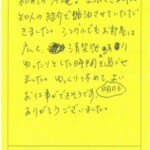 知人の紹介で宿泊させていただ
きました。シングルでもお部屋は
広く、清潔感あり
ゆったりとした時間を過ごせ
ました。ゆっくり休めて、よい
お仕事ができそうです。明日も
ありがとうございました。